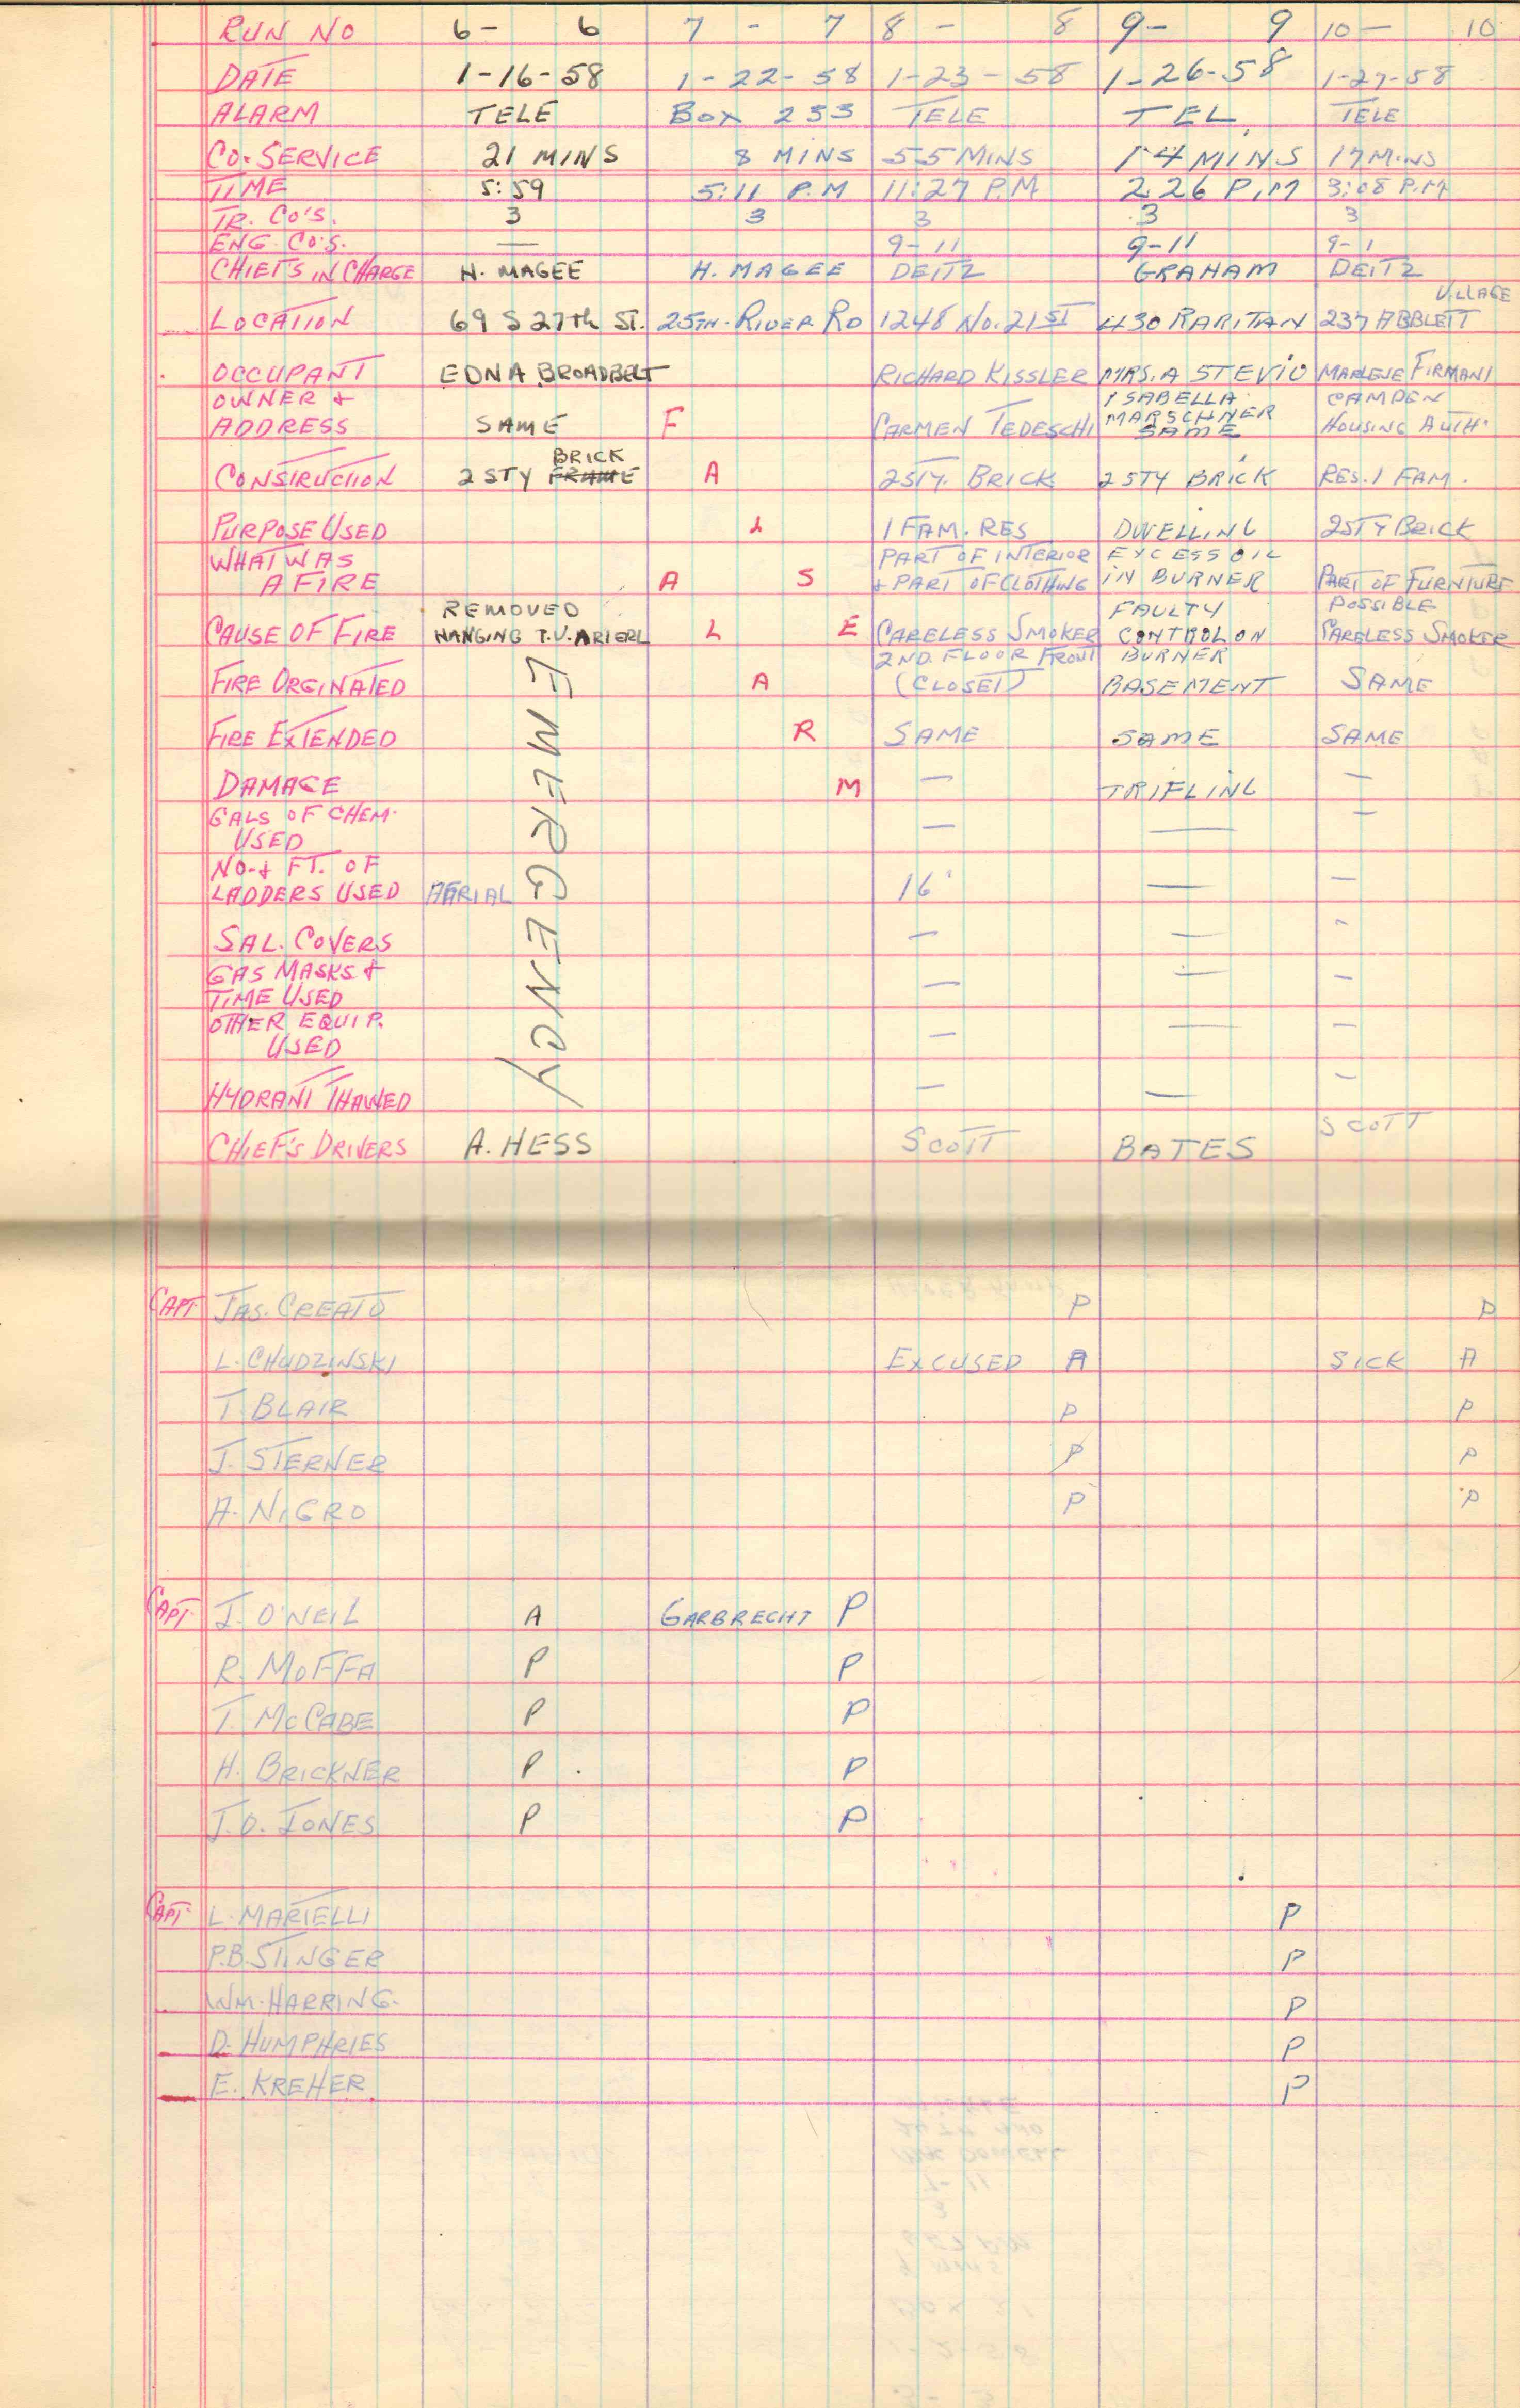 RUN NO 6- 6 7 - 7 8 - 8 9- 9 10 - 10
DATE 1-16-58 1-22-58 1-23-58 1-26-58 1-27-58
ALARM TELE BOX 233 TELE TEL. TELE
CO. SERVICE 21 MINS 8 MINS 55 MINS 14 MINS 17 MINS
TIME 5:59 5:11 P.M 11:27 P.M 2.26 P.M 3:08 P.M
TR. CO'S. 3 3 3 3 3
ENG. CO'S. — 9-11 9-11 9-1
CHIEFS IN CHARGE H. MAGEE H. MAGEE DEITZ GRAHAM DEITZ
VILLAGE
LOCATION 69 S 27th ST. 25TH-RIVER RD 1248 NO. 21 ST 430 RARITAN 237 ABBLETT
OCCUPANT EDNA BROADBELT RICHARD KISSLER MRS. A STEVIO MARLENE FIRMANI
OWNER & ISABELLA CAMPEN
ADDRESS SAME F CARMEN TEDESCHI MARSCHNER HOUSING AUTH.
SAME
BRICK
CONSTRUCTION 2 STY FRAME A 2 STY. BRICK 2 STY BRICK RES. 1 FAM.
PURPOSE USED L 1 FAM. RES DWELLING 2 STY BRICK
WHAT WAS PART OF INTERIOR EXCESS OIL
A FIRE A S & PART OF CLOTHING IN BURNER PART OF FURNITURE
REMOVED FAULTY POSSIBLE
CAUSE OF FIRE HANGING T.V. ARIERL L E CARELESS SMOKER CONTROL ON CARELESS SMOKER
2ND. FLOOR FRONT BURNER
FIRE ORGINATED A (CLOSET) BASEMENT SAME
FIRE EXTENDED R SAME SAME SAME
EMERGENCY
DAMAGE M — TRIFLING —
GALS OF CHEM.
USED — — —
NO. & FT. OF
LADDERS USED AERIAL 16' — —
SAL. COVERS — — -
GAS MASKS &
TIME USED — — —
OTHER EQUIP.
USED — — —
HYDRANT THAWED — — —
CHIEF'S DRIVERS A. HESS SCOTT BATES SCOTT
CAPT JAS. CREATO P P
L. CHUDZINSKI EXCUSED A SICK A
T. BLAIR P P
J. STERNER P P
A. NIGRO P P
CAPT. J. O'NEIL A GARBRECHT P
R. MOFFA P P
T. MCCABE P P
H. BRICKNER P P
J. O. JONES P P
CAPT. L. MARTELLI P
P.B. STINGER P
WM. HARRING. P
D. HUMPHRIES P
E. KREHER P